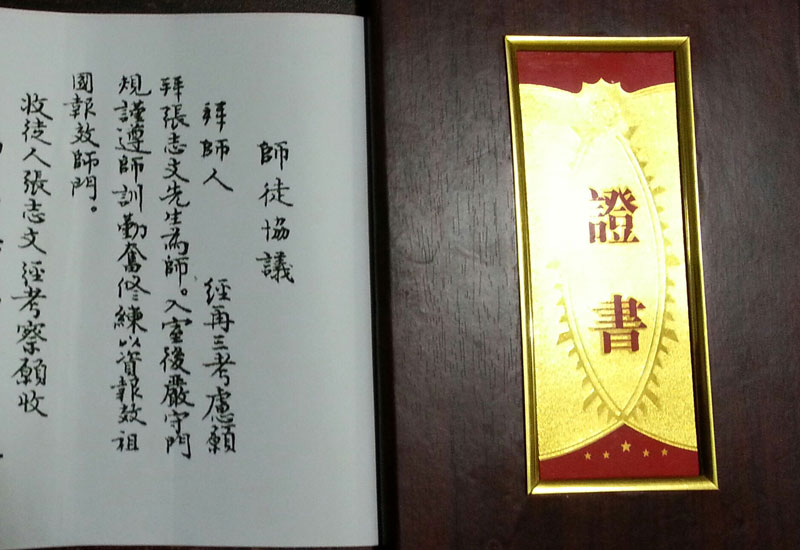 師徒協議
拜師人 經再三考慮願
拜張志文先生為師。入室後嚴守門
規謹遵師訓勤奮修練以資報效祖
國報效師門。
收徒人張志文經考察願收
證書